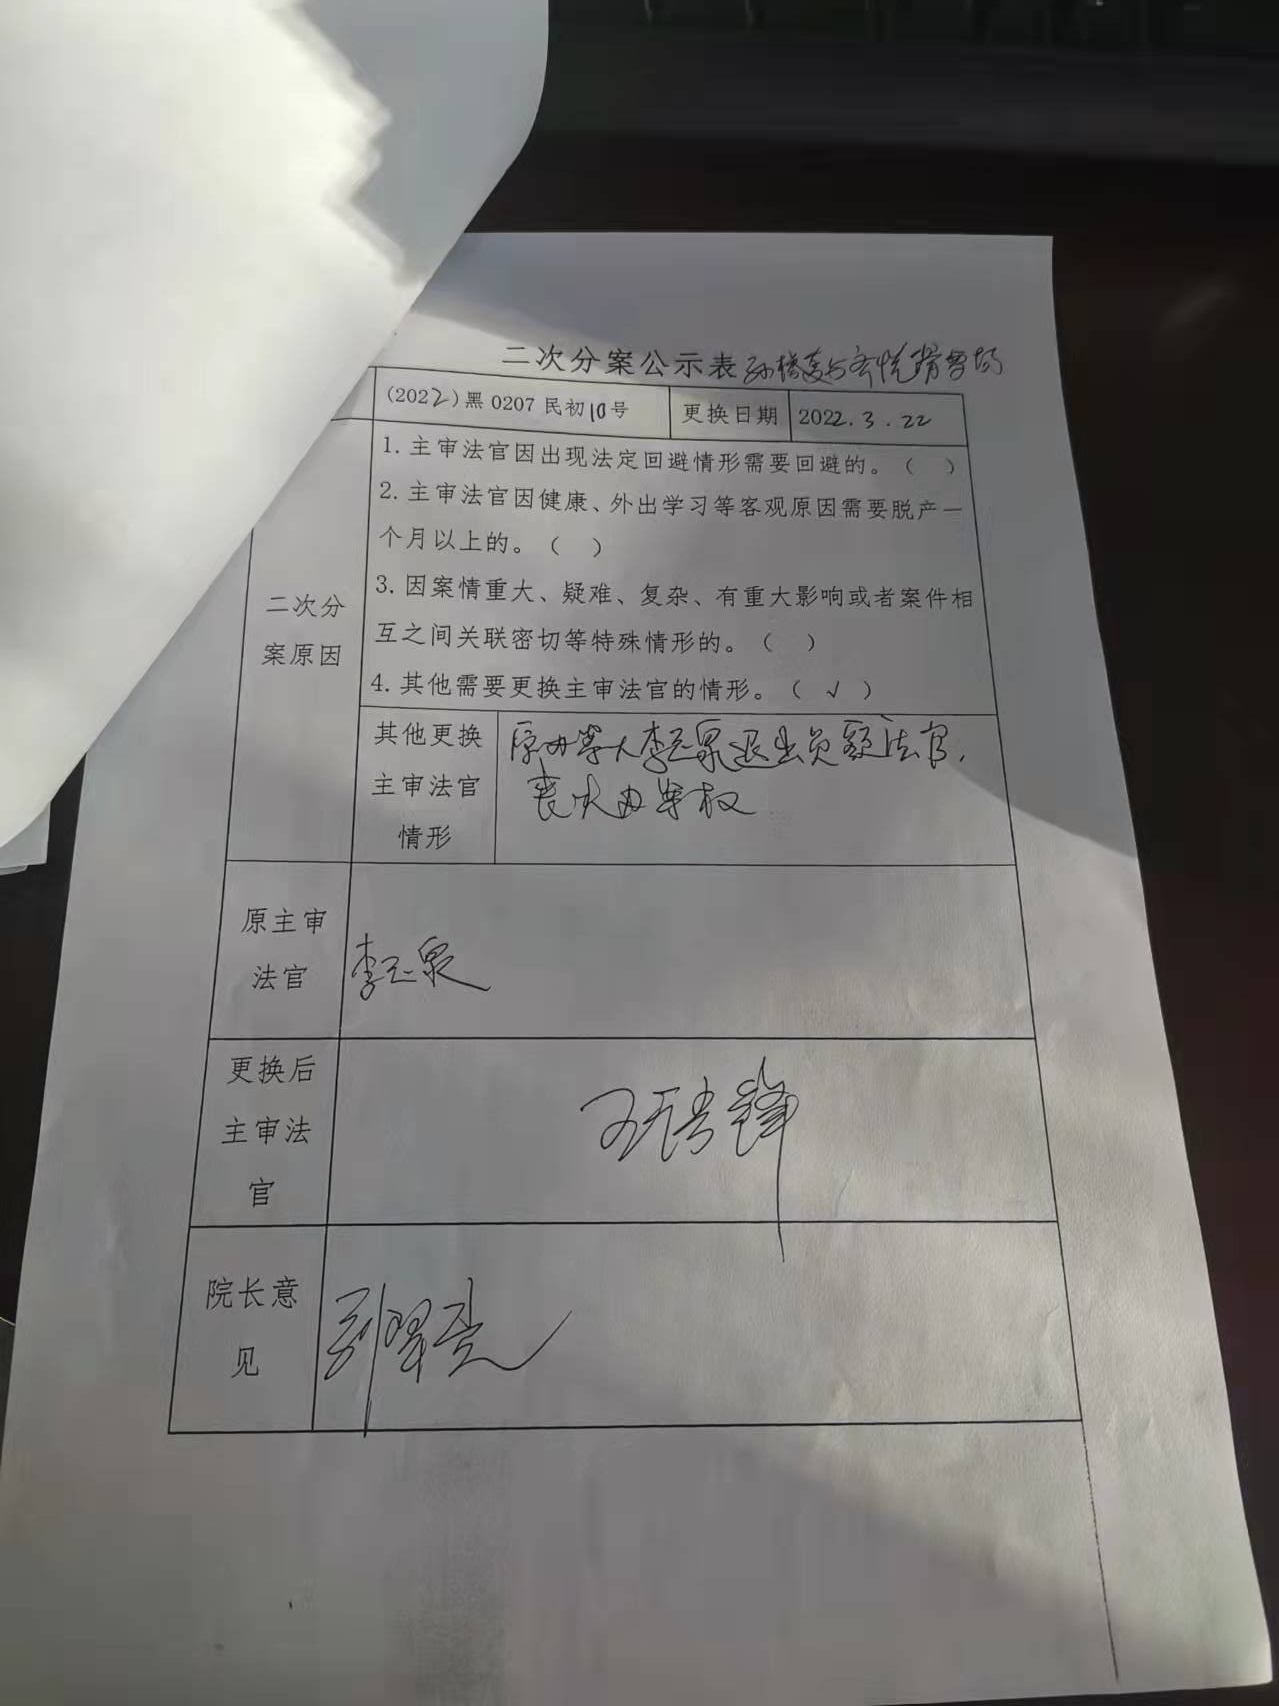 二次分案公示表
(2022)黑0207民初10号 更换日期 2022.3.22
二次分
案原因
1.主审法官因出现法定回避情形需要回避的。( )
2.主审法官因健康、外出学习等客观原因需要脱产一
个月以上的。( )
3.因案情重大、疑难、复杂、有重大影响或者案件相
互之间关联密切等特殊情形的。( )
4.其他需要更换主审法官的情形。(√)
其他更换
主审法官
情形
原办案人李玉泉退出员额法官,
丧失办案权
原主审
法官
李玉泉
更换后
主审法
官
院长意
见